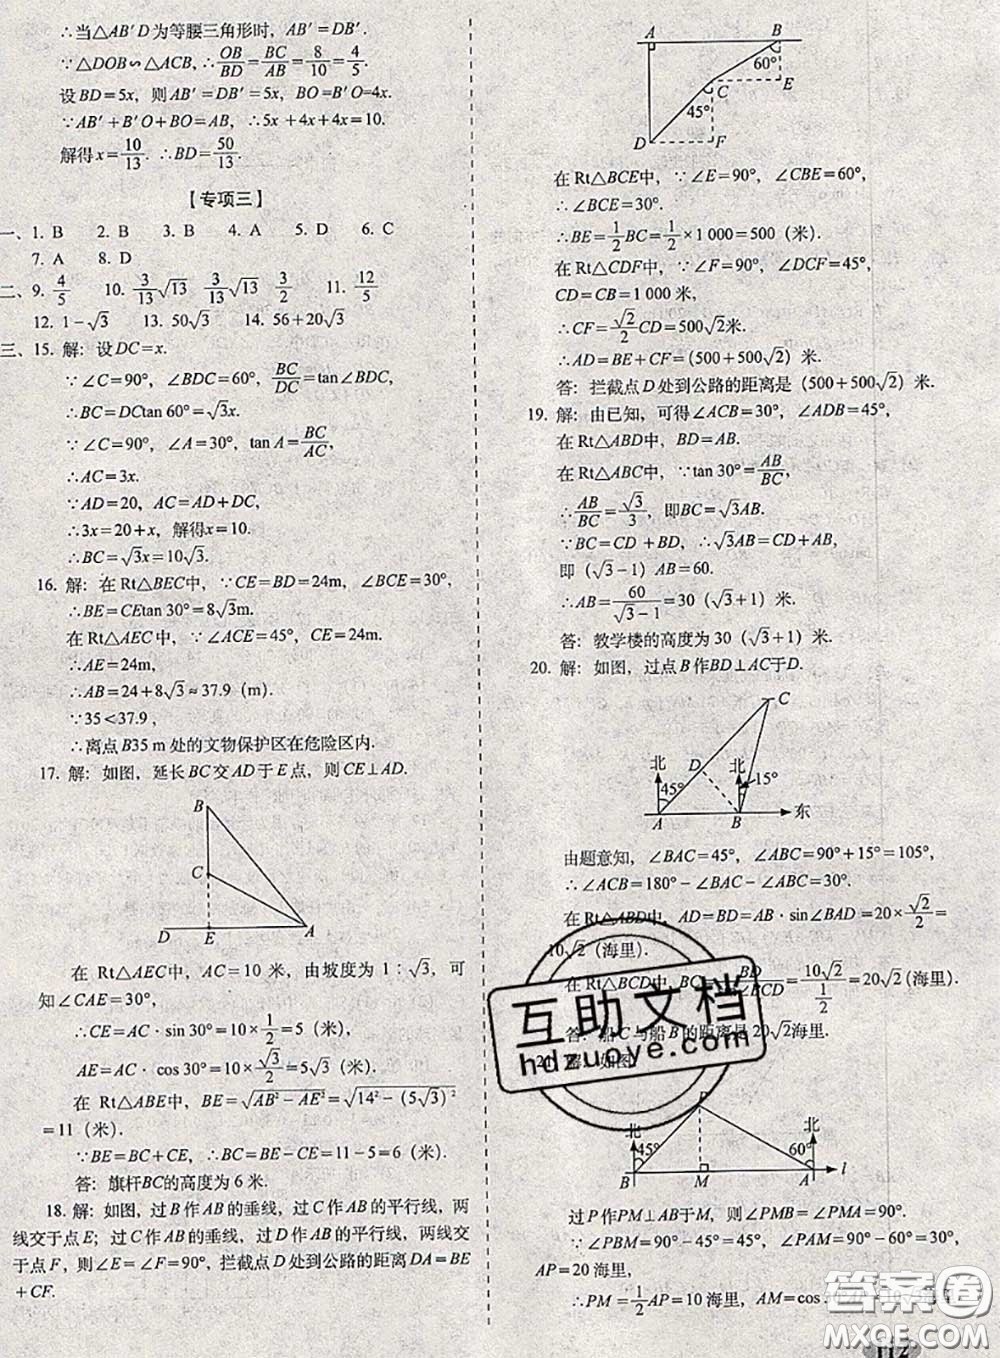 ∴当△AB′D为等腰三角形时，AB′=DB′.
∵△DOB∽△ACB, ∴OB/BD=BC/AB=8/10=4/5.
设BD=5x，则AB′=DB′=5x，BO=B′O=4x.
∵AB′+B′O+BO=AB，∴5x+4x+4x=10.
解得x=10/13. ∴BD=50/13.
【专项三】
一、1. B 2. B 3. B 4. A 5. D 6. C
7. A 8. D
二、9. 4/5 10. 3/13√13 3/13√13 3/2 11. 12/5
12. 1-√3 13. 50√3 14. 56+20√3
三、15. 解：设DC=x.
∵∠C=90°，∠BDC=60°，BC/DC=tan∠BDC，
∴BC=DCtan 60°=√3x.
∵∠C=90°，∠A=30°，tan A=BC/AC，
∴AC=3x.
∵AD=20，AC=AD+DC，
∴3x=20+x，解得x=10.
∴BC=√3x=10√3.
16. 解：在Rt△BEC中，∵CE=BD=24m，∠BCE=30°，
∴BE=CEtan 30°=8√3m.
在Rt△AEC中，∵∠ACE=45°，CE=24m.
∴AE=24m，
∴AB=24+8√3≈37.9（m）.
∵35<37.9，
∴离点B35 m处的文物保护区在危险区内.
17. 解：如图，延长BC交AD于E点，则CE⊥AD.
B
C
D E A
在Rt△AEC中，AC=10米，由坡度为1∶√3，可
知∠CAE=30°，
∴CE=AC·sin 30°=10×1/2=5（米），
AE=AC·cos 30°=10×√3/2=5√3（米）.
在Rt△ABE中，BE=√(AB²-AE²)=√(14²-(5√3)²)
=11（米）.
∵BE=BC+CE，∴BC=BE-CE=11-5=6（米）.
答：旗杆BC的高度为6米.
18. 解：如图，过B作AB的垂线，过C作AB的平行线，两
线交于点E；过C作AB的垂线，过D作AB的平行线，两线交
于点F，则∠E=∠F=90°，拦截点D处到公路的距离DA=BE
+CF.
A B
60°
C E
45°
D F
在Rt△BCE中，∵∠E=90°，∠CBE=60°，
∴∠BCE=30°.
∴BE=1/2BC=1/2×1 000=500（米）.
在Rt△CDF中，∵∠F=90°，∠DCF=45°，
CD=CB=1 000米，
∴CF=√2/2CD=500√2米.
∴AD=BE+CF=（500+500√2）米.
答：拦截点D处到公路的距离是（500+500√2）米.
19. 解：由已知，可得∠ACB=30°，∠ADB=45°，
在Rt△ABD中，BD=AB.
在Rt△ABC中，∵tan 30°=AB/BC，
∴AB/BC=√3/3，即BC=√3AB.
∵BC=CD+BD，∴√3AB=CD+AB.
即（√3-1）AB=60.
∴AB=60/(√3-1)=30（√3+1）米.
答：教学楼的高度为30（√3+1）米.
20. 解：如图，过点B作BD⊥AC于D.
C
北 D 北
45° 15°
A B 东
由题意知，∠BAC=45°，∠ABC=90°+15°=105°，
∴∠ACB=180°-∠BAC-∠ABC=30°.
在Rt△ABD中，AD=BD=AB·sin∠BAD=20×√2/2=
10√2（海里）.
在Rt△BCD中，BC=BD/∠BCD=10√2/(1/2)=20√2（海里）.
答：船C与船B的距离是20√2海里.
21. 解：如图
P
北 北
45° 60°
B M A l
过P作PM⊥AB于M，则∠PMB=∠PMA=90°.
∵∠PBM=90°-45°=45°，∠PAM=90°-60°=30°，
AP=20海里，
∴PM=1/2AP=10海里，AM=cos
互助文档
hdzuoye.com
答案圈
MXQE.COM
112